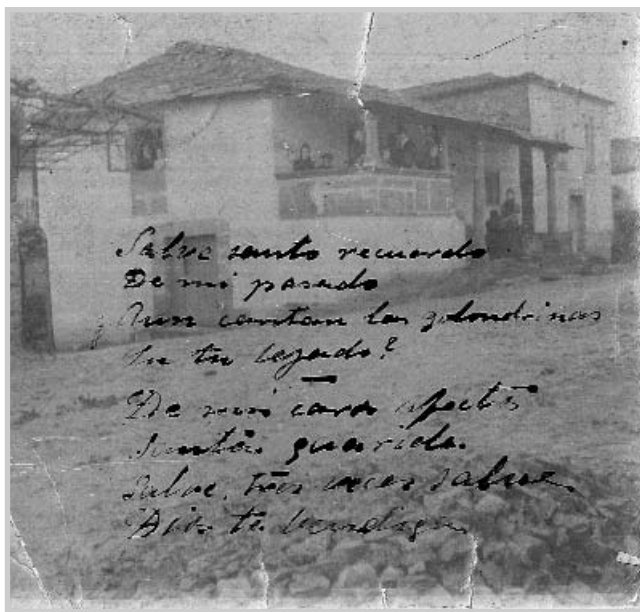 Salve santo recuerdo
De mi pasado
¿Aun cantan las golondrinas
En tu tejado?
De mi caro afecto
Santa guarida.
Salve, tres veces salve
Dios te bendiga